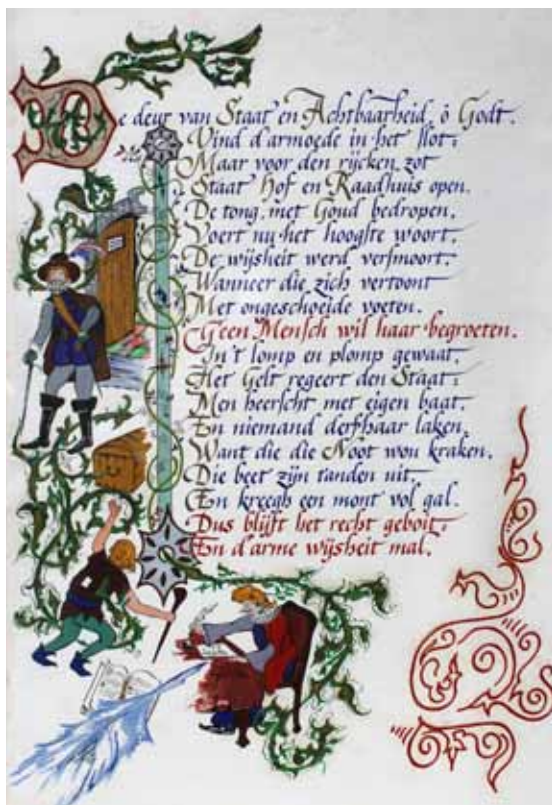 De deur van Staat en Achtbaarheid, ô Godt.
Vind d'armoede in het slot;
Maar voor den rijcken zot
Staat Hof en Raadhuis open.
De tong, met Goud bedropen,
Voert nu het hoogste woort.
De wijsheit werd versmoort,
Wanneer die zich vertoont
Met ongeschoeide voeten.
Geen Mensch wil haar begroeten.
In't lomp en plomp gewaat.
Het Gelt regeert den Staat;
Men heerscht met eigen baat.
En niemand derf haar laken,
Want die die Noot wou kraken.
Die beet zijn tanden uit.
En kreegh een mont vol gal.
Dus blijft het recht geboit,
En d'arme wijsheit mal.